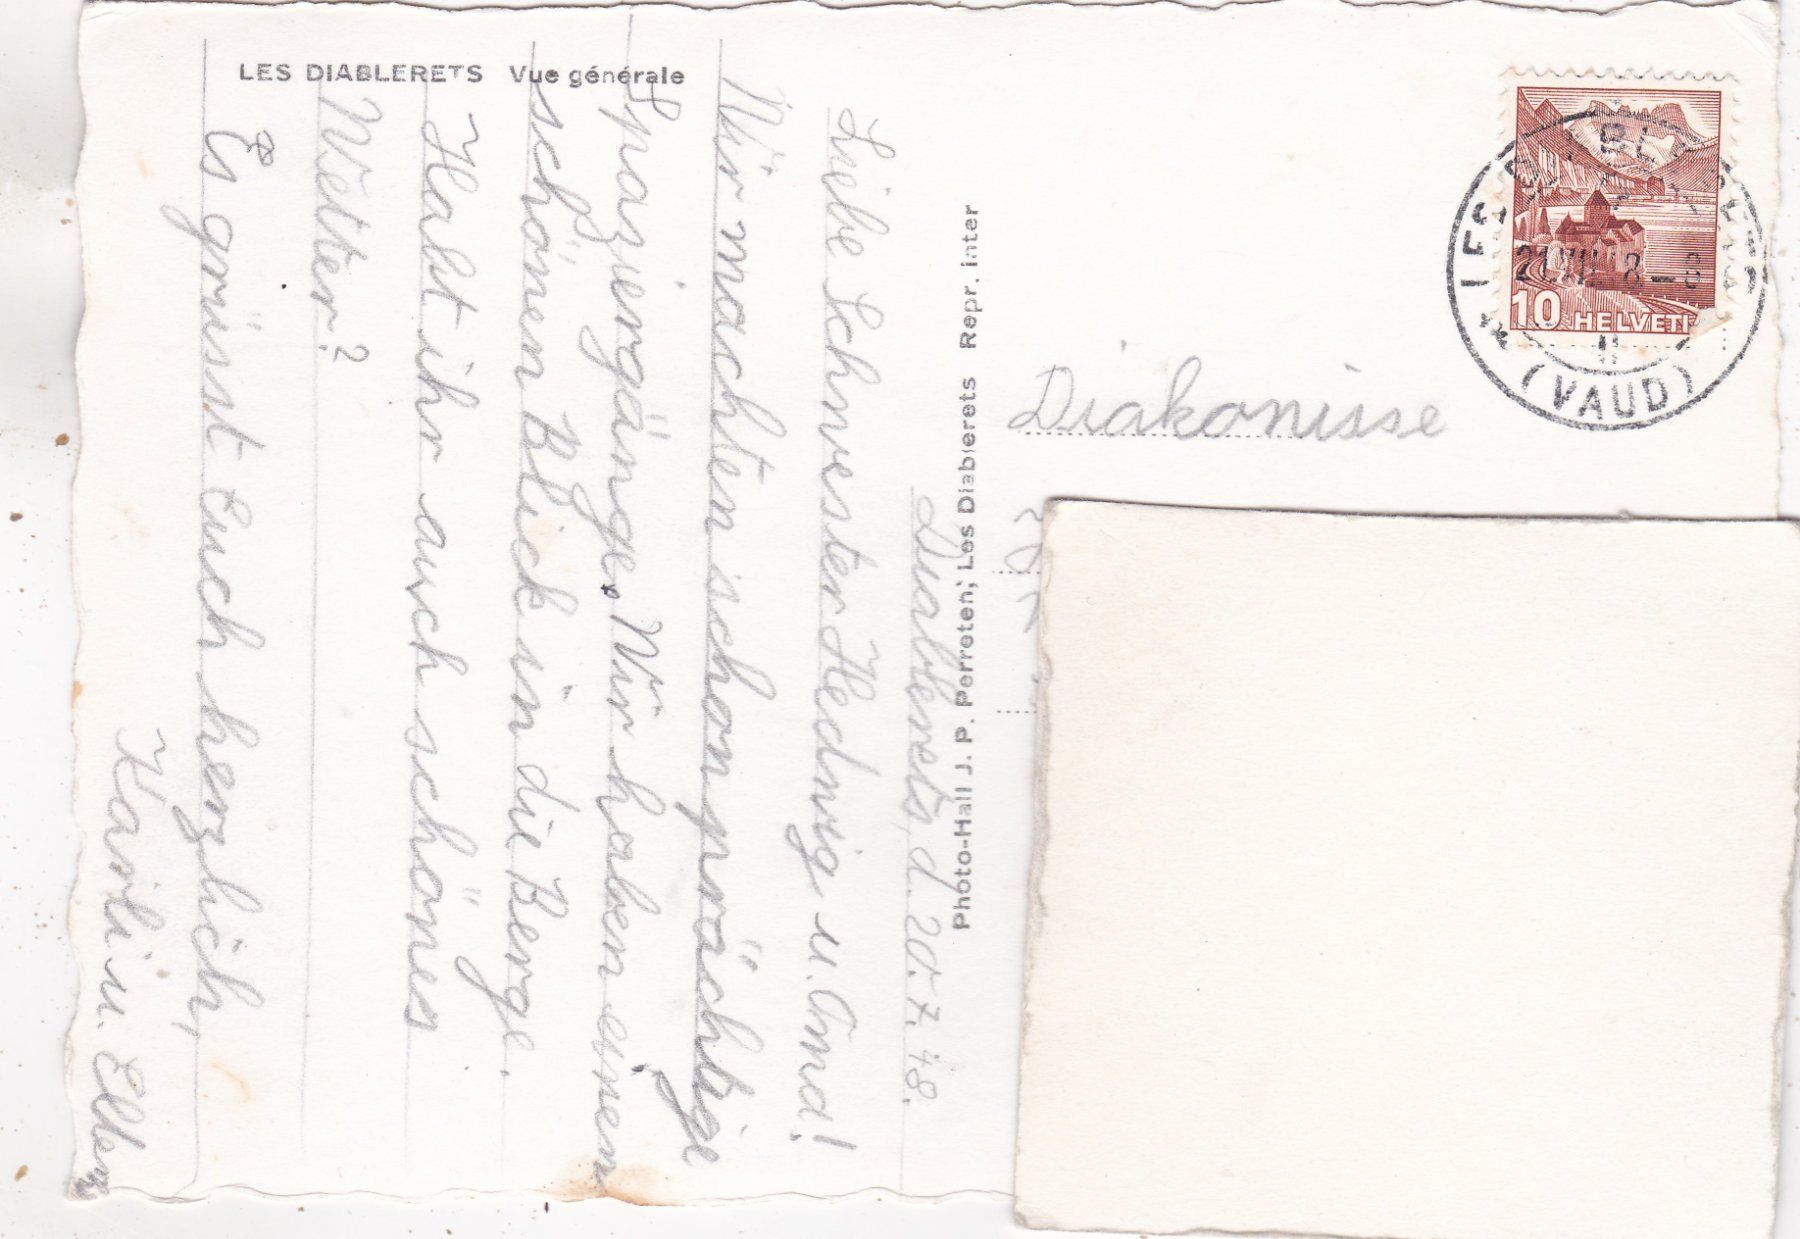 LES DIABLERETS Vue générale
Diablerets, d. 20.7.48.
Liebe Schwester Hedwig u. Amd!
Wir machten schon prächtige
Spaziergänge. Wir haben einen
schönen Blick in die Berge.
Habt ihr auch schönes
Wetter?
Es grüsst Euch herzlich,
Karli u. Eltern
Photo-Hall J. P. Perreten, Les Diablerets Repr. inter
Diakonisse
10 HELVETI
LES DIABLERETS
21.VII.48-8
(VAUD)